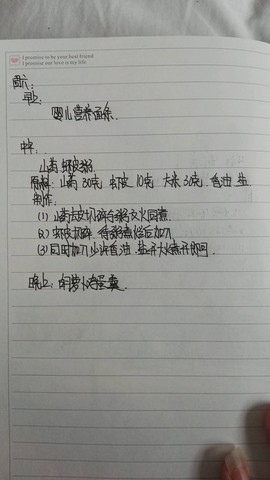 I promise to be your best friend
I promise our love is my life
周六:
早上:
婴儿营养面条.
中午:
山药虾皮粥
原料: 山药30克 虾皮10克 大米30克. 香油 盐
制作:
(1) 山药去皮切碎与粥文火同煮.
(2) 虾皮切碎. 待粥煮烂后加入
(3) 同时加入少许香油、盐并大火煮开即可.
晚上: 胡萝卜鸡蛋羹.